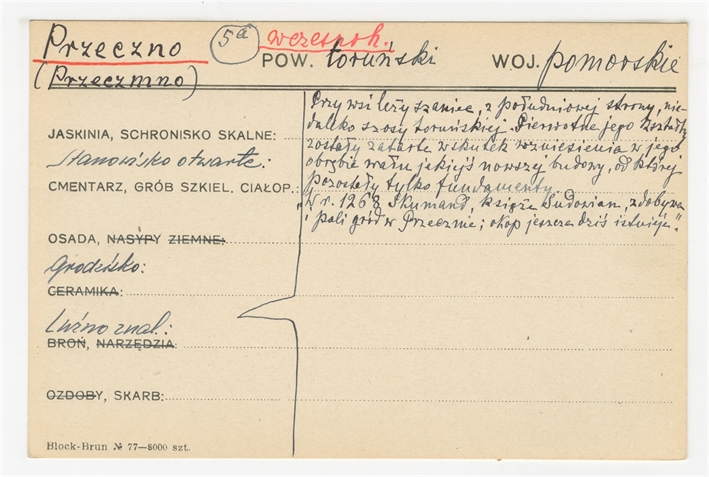 Przeczno 5a wczesnok.
POW. toruński WOJ. pomorskie
(Przeczmno)
Przy wsi leży szaniec, z południowej strony, nie-
daleko szosy toruńskiej. Pierwotne jego kształty
zostały zatarte wskutek wzniesienia w jego
obrębie wału jakiejś nowszej budowy, od której
pozostały tylko fundamenty.
"W r. 1268 Skumand, książe Sudowian, zdobywa
i pali gród w Przecznie; okop jeszcze dziś istnieje."
JASKINIA, SCHRONISKO SKALNE:
Stanowisko otwarte:
CMENTARZ, GRÓB SZKIEL, CIAŁOP.:
OSADA, NASYPY ZIEMNE:
Grodzisko:
CERAMIKA:
Luźno znal.:
BROŃ, NARZĘDZIA:
OZDOBY, SKARB:
Block-Brun № 77—8000 szt.